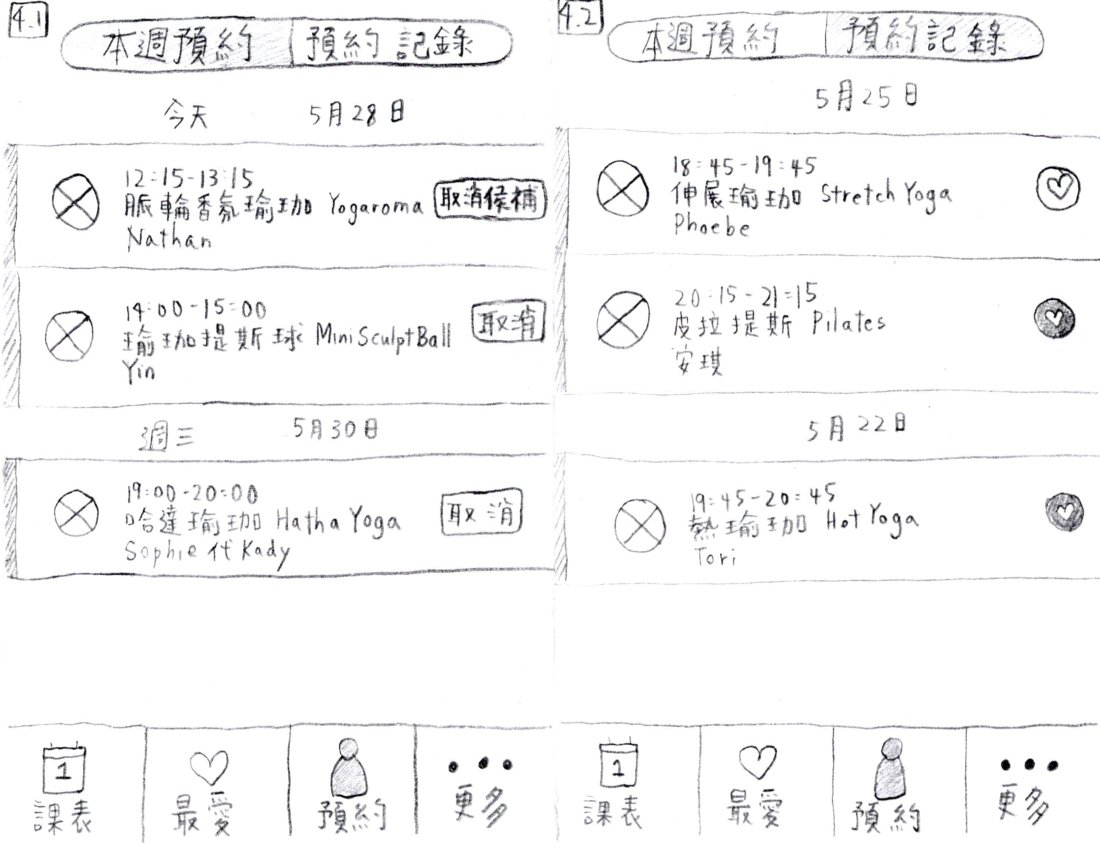 4.1
本週預約 預約記錄
今天 5月28日
12:15-13:15
脈輪香氛瑜珈 Yogaroma
Nathan
取消候補
14:00-15:00
瑜珈提斯球 Mini Sculpt Ball
Yin
取消
週三 5月30日
19:00-20:00
哈達瑜珈 Hatha Yoga
Sophie 代 Kady
取消
1
課表
最愛
預約
更多
4.2
本週預約 預約記錄
5月25日
18:45-19:45
伸展瑜珈 Stretch Yoga
Phoebe
20:15-21:15
皮拉提斯 Pilates
安琪
5月22日
19:45-20:45
熱瑜珈 Hot Yoga
Tori
1
課表
最愛
預約
更多